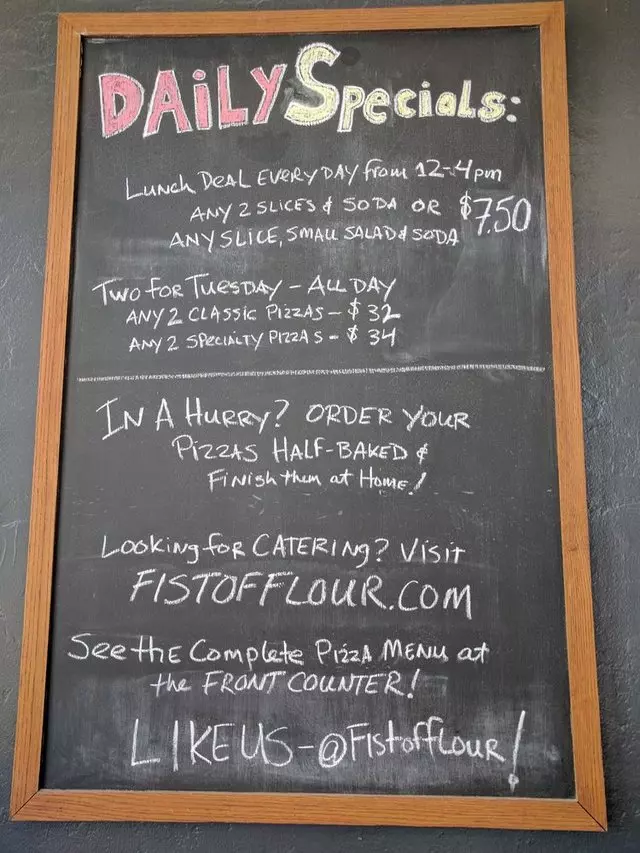 DAiLY Specials:
Lunch DeaL EVERY DAY from 12-4pm
ANY 2 SLICES & SODA OR $7.50
ANY SLICE, SMALL SALAD & SODA
Two for Tuesday - All Day
ANY 2 CLASSIC PIZZAS - $32
ANY 2 SPECIALTY PIZZAS - $34
IN A HURRY? ORDER YOUR
PIZZAS HALF-BAKED &
Finish them at Home!
Looking for CATERING? VISIT
FISTOFFLOUR.COM
See the Complete Pizza MENU at
the FRONT COUNTER!
LIKE US - @FistofFLOUR!